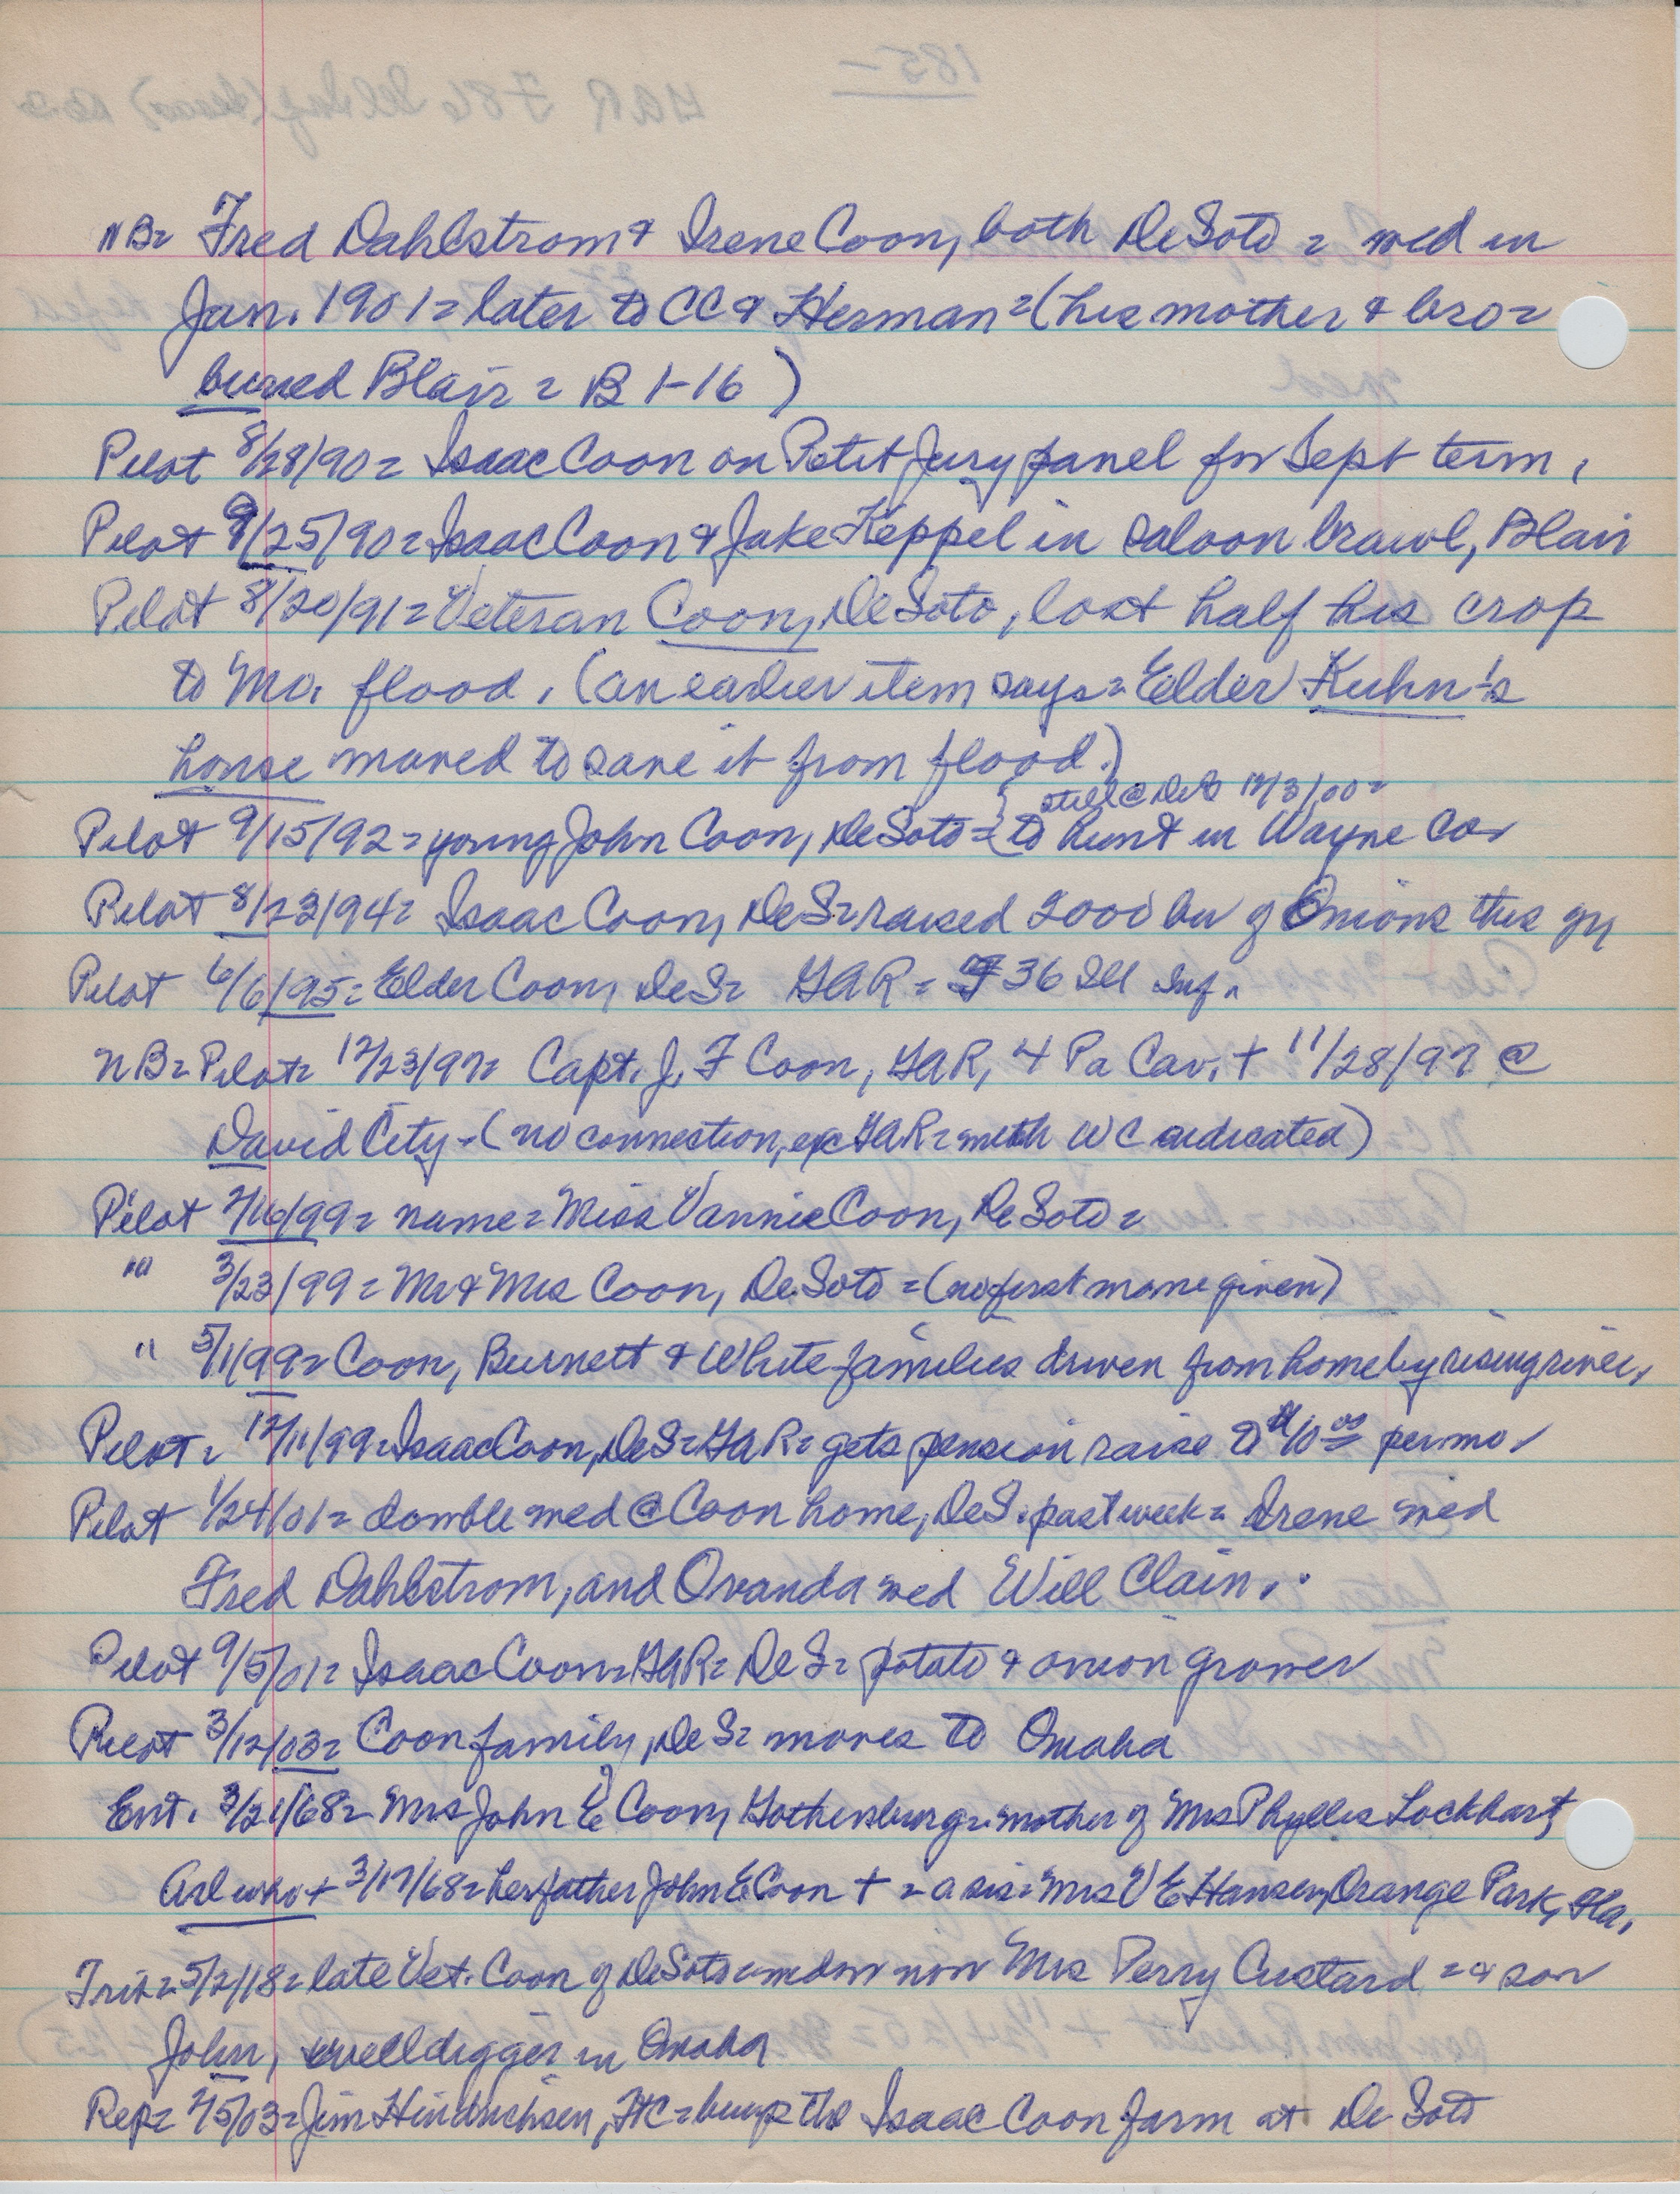 NB= Fred Dahlstrom & Irene Coon, both DeSoto = wed in
Jan. 1901= later to CC & Herman =(his mother & bro=
buried Blair = B 1-16)
Pilot 8/28/90= Isaac Coon on Petit Jury panel for Sept term.
Pilot 9/25/90= Isaac Coon & Jake Keppel in saloon brawl, Blair
Pilot 8/20/91= Veteran Coon, DeSoto, lost half his crop
to Mo. flood. (an earlier item says= Elder Kuhn's
house moved to save it from flood.)
still @ DeS 12/3/00=
Pilot 9/15/92= young John Coon, DeSoto= to hunt in Wayne Co.
Pilot 8/23/94= Isaac Coon, DeS= raised 2000 bu of Onions this yr
Pilot 6/6/95= Elder Coon, DeS= GAR= F 36 Ill Inf.
NB= Pilot= 12/23/97= Capt. J. F Coon, GAR, 4 Pa Cav. + 11/28/97 @
David City -(no connection, exc GAR= with WC indicated)
Pilot 2/16/99= name= Miss Vannie Coon, DeSoto=
"" 3/23/99= Mr & Mrs Coon, DeSoto =(no first name given)
" 5/11/99= Coon, Burnett & White families driven from home by rising river,
Pilot= 12/11/99= Isaac Coon, DeS= GAR= gets pension raise to $10.00 per mo.
Pilot 1/24/01= double wed @ Coon home, DeS. past week= Irene wed
Fred Dahlstrom, and Ovanda wed Will Clain.
Pilot 9/5/01= Isaac Coon= GAR= DeS= potato & onion grower
Pilot 3/12/03= Coon family, DeS= moves to Omaha
Ent. 3/21/68= Mrs John E Coon, Gothenburg= mother of Mrs Phyllis Lockhart,
Arl who + 3/17/68= her father John E Coon + = a sis= Mrs V E Hansen, Orange Park, Fla,
Trib= 5/2/18= late Vet. Coon of DeSoto= widow now Mrs Perry Custard = & son
John, welldigger in Omaha
Rep= 4/5/03= Jim Hindrichsen, FtC= buys the Isaac Coon farm at De Soto